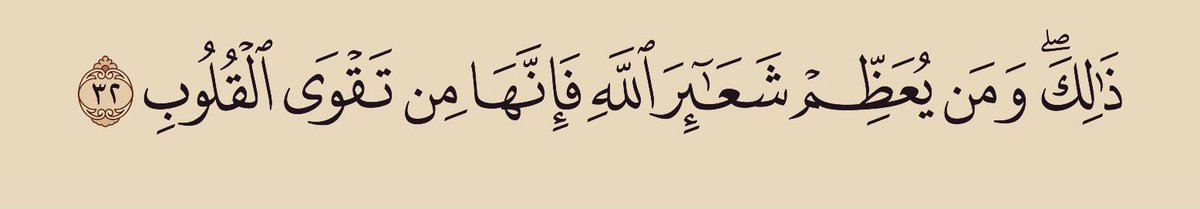 ذَٰلِكَۖ وَمَن يُعَظِّمۡ شَعَـٰٓئِرَ ٱللَّهِ فَإِنَّهَا مِن تَقۡوَى ٱلۡقُلُوبِ ٣٢